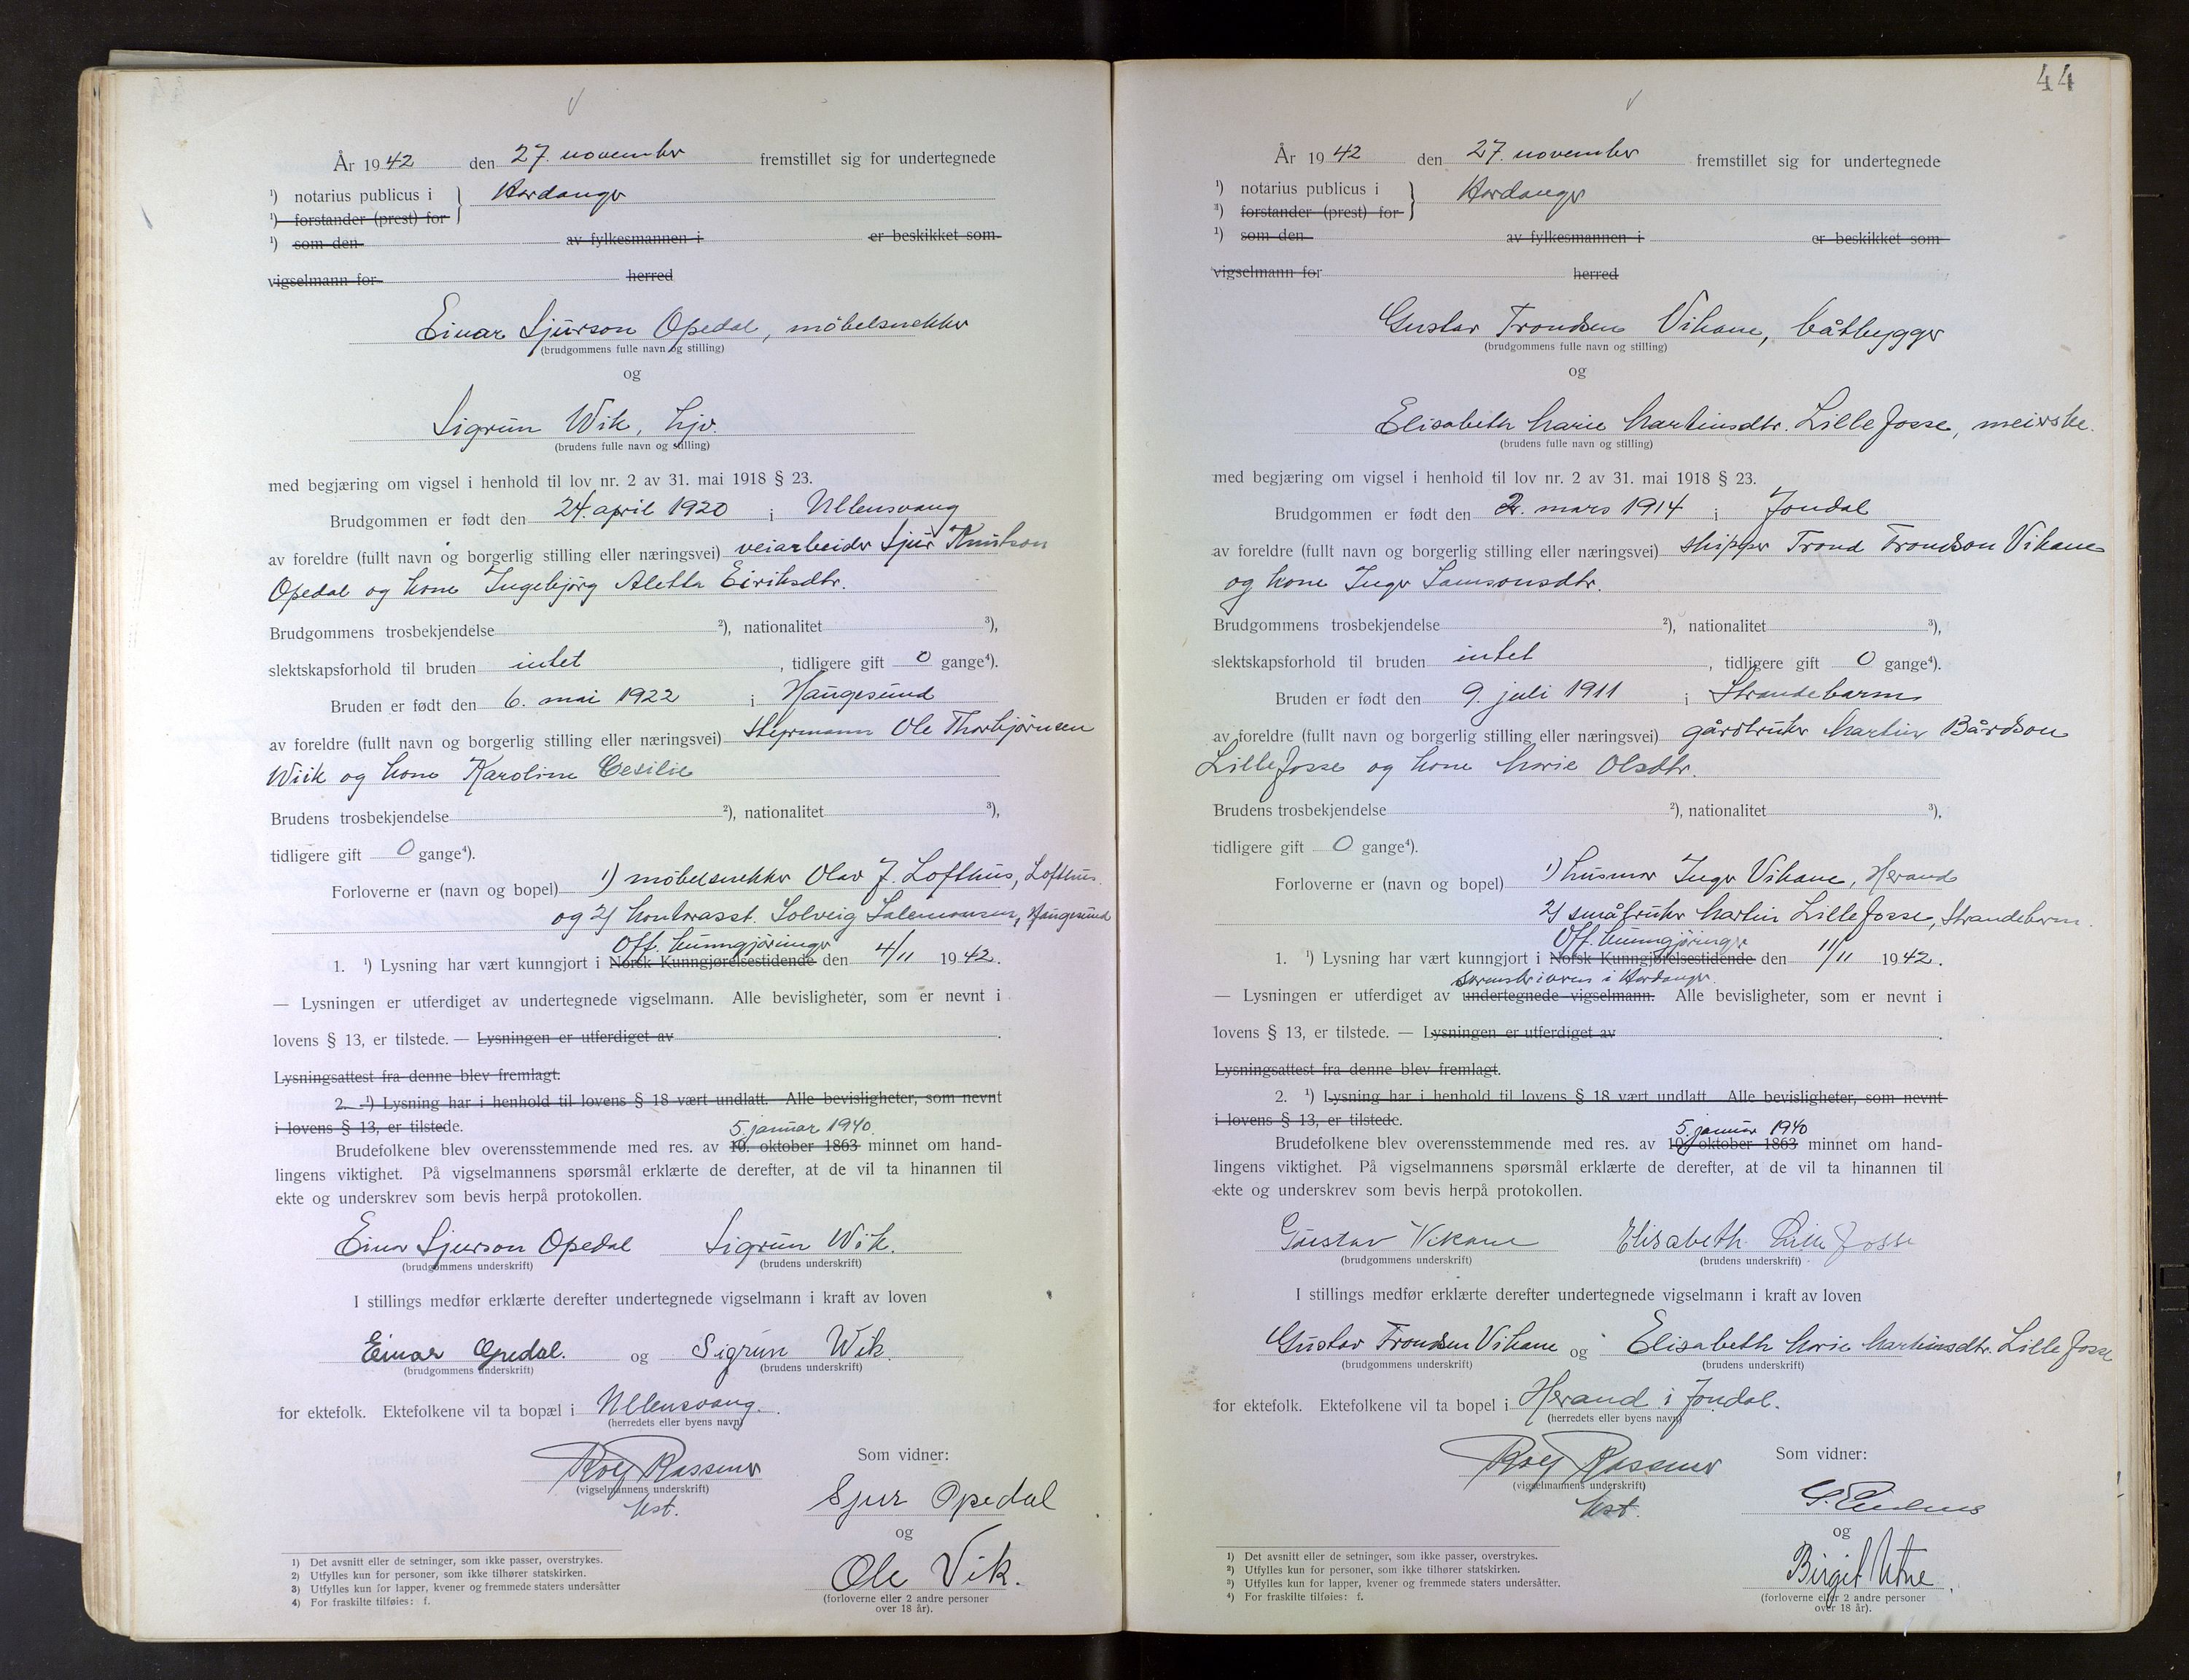 År 1942 den 27. november fremstillet sig for undertegnede
¹) notarius publicus i } Hardanger
¹) forstander (prest) for
¹) som den av fylkesmannen i er beskikket som
vigselmann for herred
Einar Sjurson Opedal, möbelsnekker
(brudgommens fulle navn og stilling)
og
Sigrun Wik, hjv.
(brudens fulle navn og stilling)
med begjæring om vigsel i henhold til lov nr. 2 av 31. mai 1918 § 23.
Brudgommen er født den 24. april 1920 i Ullensvang
av foreldre (fullt navn og borgerlig stilling eller næringsvei) veiarbeider Sjur Knutson
Opedal og kone Ingebjörg Aletta Eiriksdtr.
Brudgommens trosbekjendelse ²), nationalitet ³),
slektskapsforhold til bruden intet, tidligere gift 0 gange⁴).
Bruden er født den 6. mai 1922 i Haugesund
av foreldre (fullt navn og borgerlig stilling eller næringsvei) styrmann Ole Thorbjörnsen
Wiik og kone Karoline Cesilie
Brudens trosbekjendelse ²), nationalitet ³),
tidligere gift 0 gange⁴).
Forloverne er (navn og bopel) 1) möbelsnekker Olav J. Lofthus, Lofthus.
og 2) kontorasst. Solveig Salemonsen, Haugesund
Off. kunngjöringer
1. ¹) Lysning har vært kunngjort i Norsk Kunngjørelsestidende den 4/11 1942.
— Lysningen er utferdiget av undertegnede vigselmann. Alle bevisligheter, som er nevnt i
lovens § 13, er tilstede. — Lysningen er utferdiget av .
Lysningsattest fra denne blev fremlagt.
2. ¹) Lysning har i henhold til lovens § 18 vært undlatt. Alle bevisligheter, som nevnt
i lovens § 13, er tilstede.
5. januar 1940.
Brudefolkene blev overensstemmende med res. av 10. oktober 1863 minnet om hand-
lingens viktighet. På vigselmannens spørsmål erklærte de derefter, at de vil ta hinannen til
ekte og underskrev som bevis herpå protokollen.
Einar Sjurson Opedal Sigrun Wik.
(brudgommens underskrift) (brudens underskrift)
I stillings medfør erklærte derefter undertegnede vigselmann i kraft av loven
Einar Opedal. og Sigrun Wik.
(brudgommens underskrift) (brudens underskrift)
for ektefolk. Ektefolkene vil ta bopæl i Ullensvang.
(herredets eller byens navn)
Rolf Rassmer
(vigselmannens underskrift)
kst.
Som vidner:
Sjur Opedal
og
Ole Vik.
(forloverne eller 2 andre personer
over 18 år).
1) Det avsnitt eller de setninger, som ikke passer, overstrykes.
2) Utfylles kun for personer, som ikke tilhører statskirken.
3) Utfylles kun for lapper, kvener og fremmede staters undersåtter
4) For fraskilte tilføies: f.
44
År 1942 den 27. november fremstillet sig for undertegnede
¹) notarius publicus i } Hardanger
³) forstander (prest) for
¹) som den av fylkesmannen i er beskikket som
vigselmann for herred
Gustav Trondsen Vikane, båtbygger
(brudgommens fulle navn og stilling)
og
Elisabeth Marie Martinsdtr. Lille Josse, meierske.
(brudens fulle navn og stilling)
med begjæring om vigsel i henhold til lov nr. 2 av 31. mai 1918 § 23.
Brudgommen er født den 2. mars 1914 i Jondal
av foreldre (fullt navn og borgerlig stilling eller næringsvei) skipper Trond Trondson Vikane
og kone Inger Samsonsdtr.
Brudgommens trosbekjendelse ²), nationalitet ³),
slektskapsforhold til bruden intet, tidligere gift 0 gange⁴).
Bruden er født den 9. juli 1911 i Strandebarm
av foreldre (fullt navn og borgerlig stilling eller næringsvei) gårdbruker Martin Bårdson
Lille Josse og kone Marie Olsdtr.
Brudens trosbekjendelse ²), nationalitet ³),
tidligere gift 0 gange⁴).
Forloverne er (navn og bopel) 1) husmor Inger Vikane, Herand
2) småbruker Martin Lille Josse, Strandebarm.
Off. kunngjöringer
1. ¹) Lysning har vært kunngjort i Norsk Kunngjørelsestidende den 11/11 1942.
sorenskriveren i Hardanger.
— Lysningen er utferdiget av undertegnede vigselmann. Alle bevisligheter, som er nevnt i
lovens § 13, er tilstede. — Lysningen er utferdiget av .
Lysningsattest fra denne blev fremlagt.
2. ¹) Lysning har i henhold til lovens § 18 vært undlatt. Alle bevisligheter, som nevnt
i lovens § 13, er tilstede.
5. januar 1940
Brudefolkene blev overensstemmende med res. av 10. oktober 1863 minnet om hand-
lingens viktighet. På vigselmannens spørsmål erklærte de derefter, at de vil ta hinannen til
ekte og underskrev som bevis herpå protokollen.
Gustav Vikane Elisabeth Lille Josse
(brudgommens underskrift) (brudens underskrift)
I stillings medfør erklærte derefter undertegnede vigselmann i kraft av loven
Gustav Trondsen Vikane og Elisabeth Marie Martinsdtr. Lille Josse
(brudgommens underskrift) (brudens underskrift)
for ektefolk. Ektefolkene vil ta bopel i Herand i Jondal.
(herredets eller byens navn)
Rolf Rassmer
(vigselmannens underskrift)
kst.
Som vidner:
og
Birgit Utne.
(forloverne eller 2 andre personer
over 18 år).
1) Det avsnitt eller de setninger, som ikke passer, overstrykes.
²) Utfylles kun for personer, som ikke tilhører statskirken.
³) Utfylles kun for lapper, kvener og fremmede staters undersåtter.
⁴) For fraskilte tilføies: f.